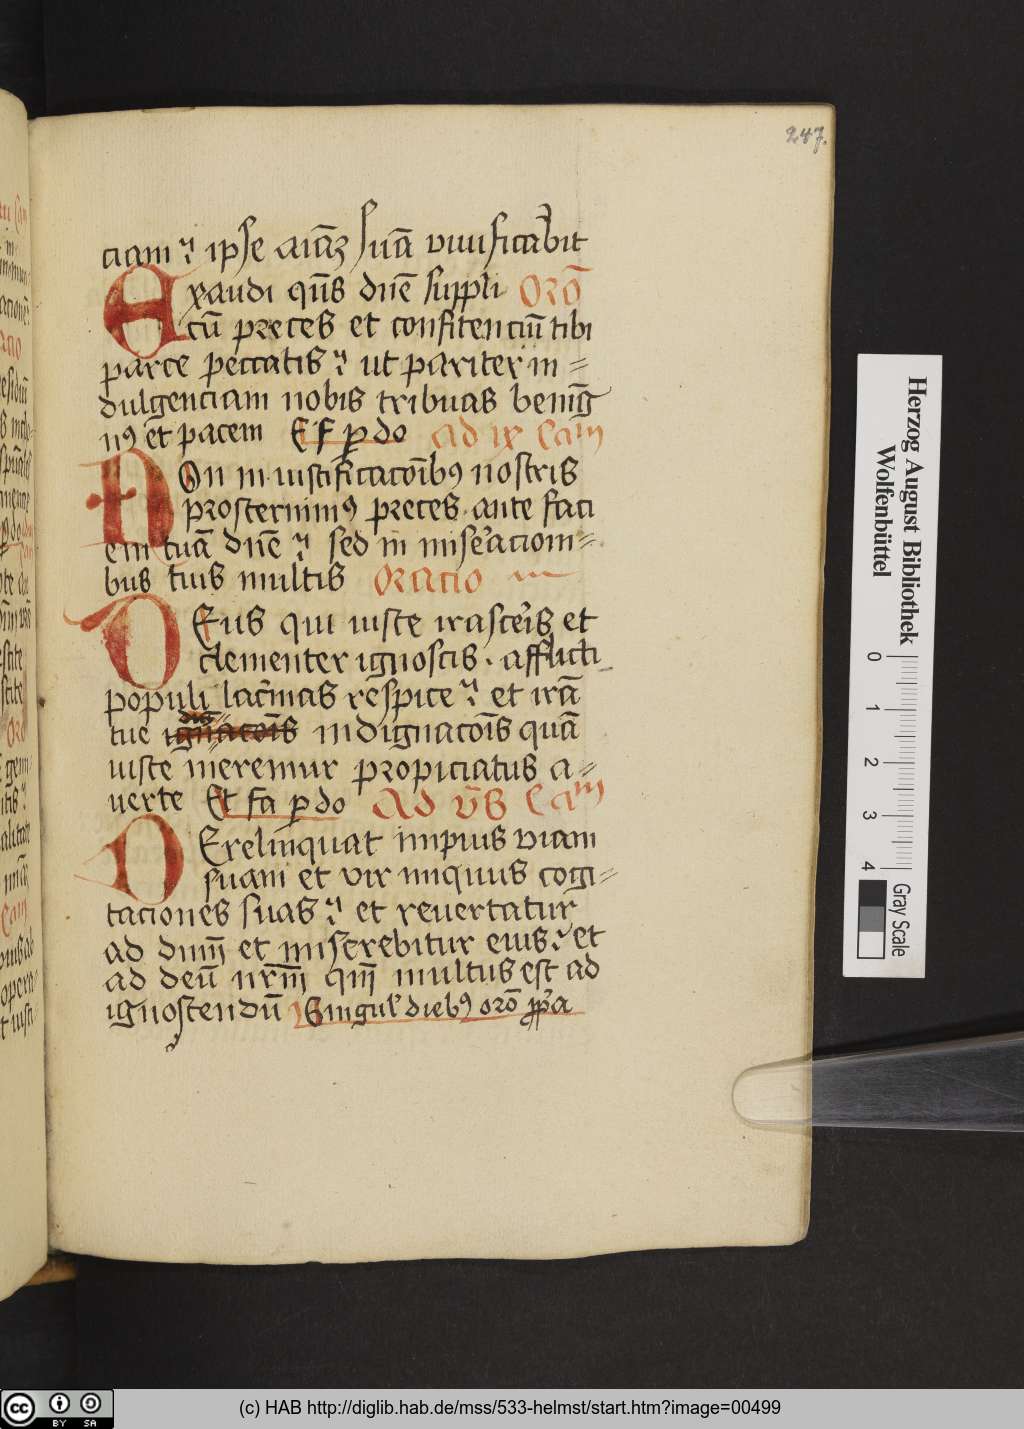 247.
ciam ipse aiāz suā viuificabit
Exaudi qs̄ dn̄e suppli Orō
cū preces et confitenciū tibi
parce peccatis ut pariter in=
dulgenciam nobis tribuas beniḡ
nꝯ et pacem Et f ꝑ do ad ix Cam
Non in iustificacōibꝯ nostris
prosternimꝯ preces ante faci
em tuā dn̄e sed in miseraciom=
bus tuis multis Oracio
Deus qui iuste irasceris et
clementer ignoscis. afflicti
populi lac̄mas respice et irā
tue indignacōis quā
iuste meremur propiciatus a=
uerte Et fa ꝑ do Ad vs̄ Cam
Derelinquat impius viam
suam et vir iniquus cogi=
taciones suas et reuertatur
ad dnm̄ et miserebitur eius et
ad deū nr̄m qm̄ multus est ad
ignoscendū Singul' diebꝯ orō ꝓpa
Herzog August Bibliothek
Wolfenbüttel
0 1 2 3 4
Gray Scale
cc BY SA
(c) HAB http://diglib.hab.de/mss/533-helmst/start.htm?image=00499